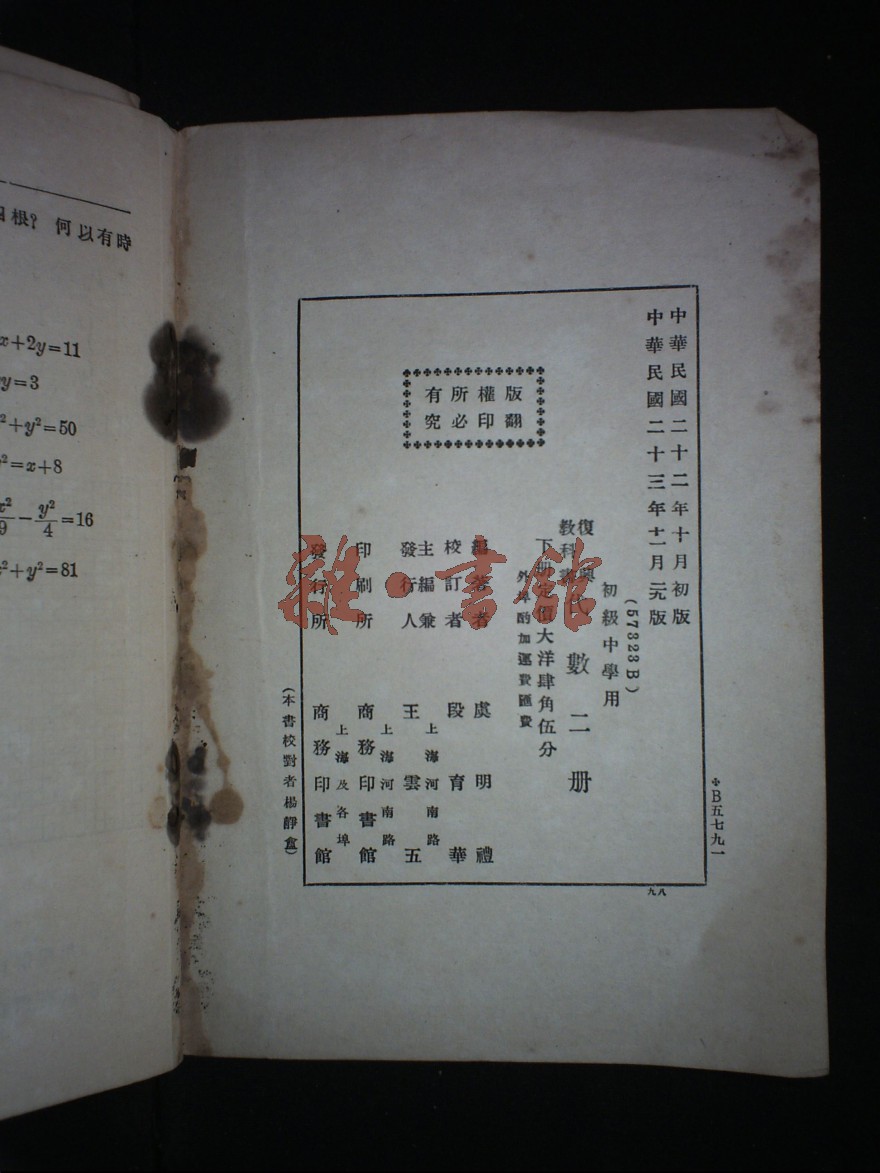 根? 何以有時
x+2y=11
y=3
²+y²=50
²=x+8
x²/9−y²/4=16
²+y²=81
中華民國二十二年十月初版
中華民國二十三年十一月版
(57323B)
初級中學用
復興
教科書
代數二册
下册定價大洋肆角伍分
外埠酌加運費匯費
版權所有
翻印必究
編著者 虞明禮
校訂者 段育華
主編兼
發行人
上海河南路
王雲五
印刷所
上海河南路
商務印書館
發行所
上海及各埠
商務印書館
(本書校對者楊靜盦)
B五七九一
雜·書館